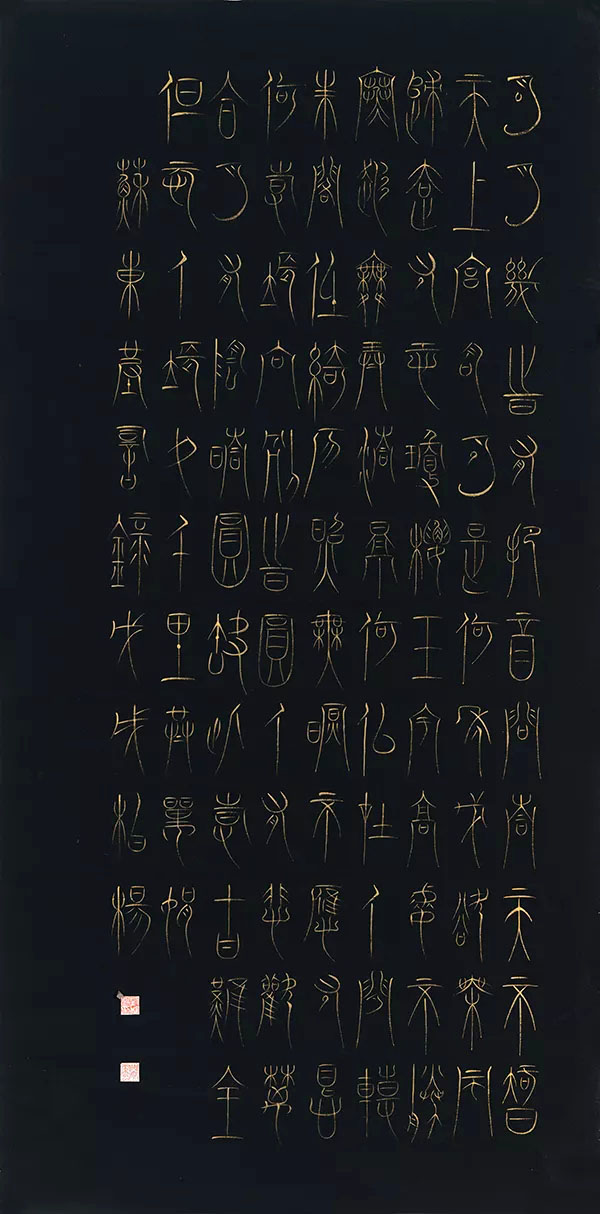 明月幾時有把酒問青天不智
天上宮夕是何年我欲乘風
歸去又恐瓊樓玉宇高處不勝
寒起舞弄清影何似在人間轉
朱閣低綺戶照無眠不應有恨
何事長向別時圓人有悲歡離
合月有陰晴圓缺此事古難全
但願人長久千里共嬋娟
蘇東錄戊戌柏楊